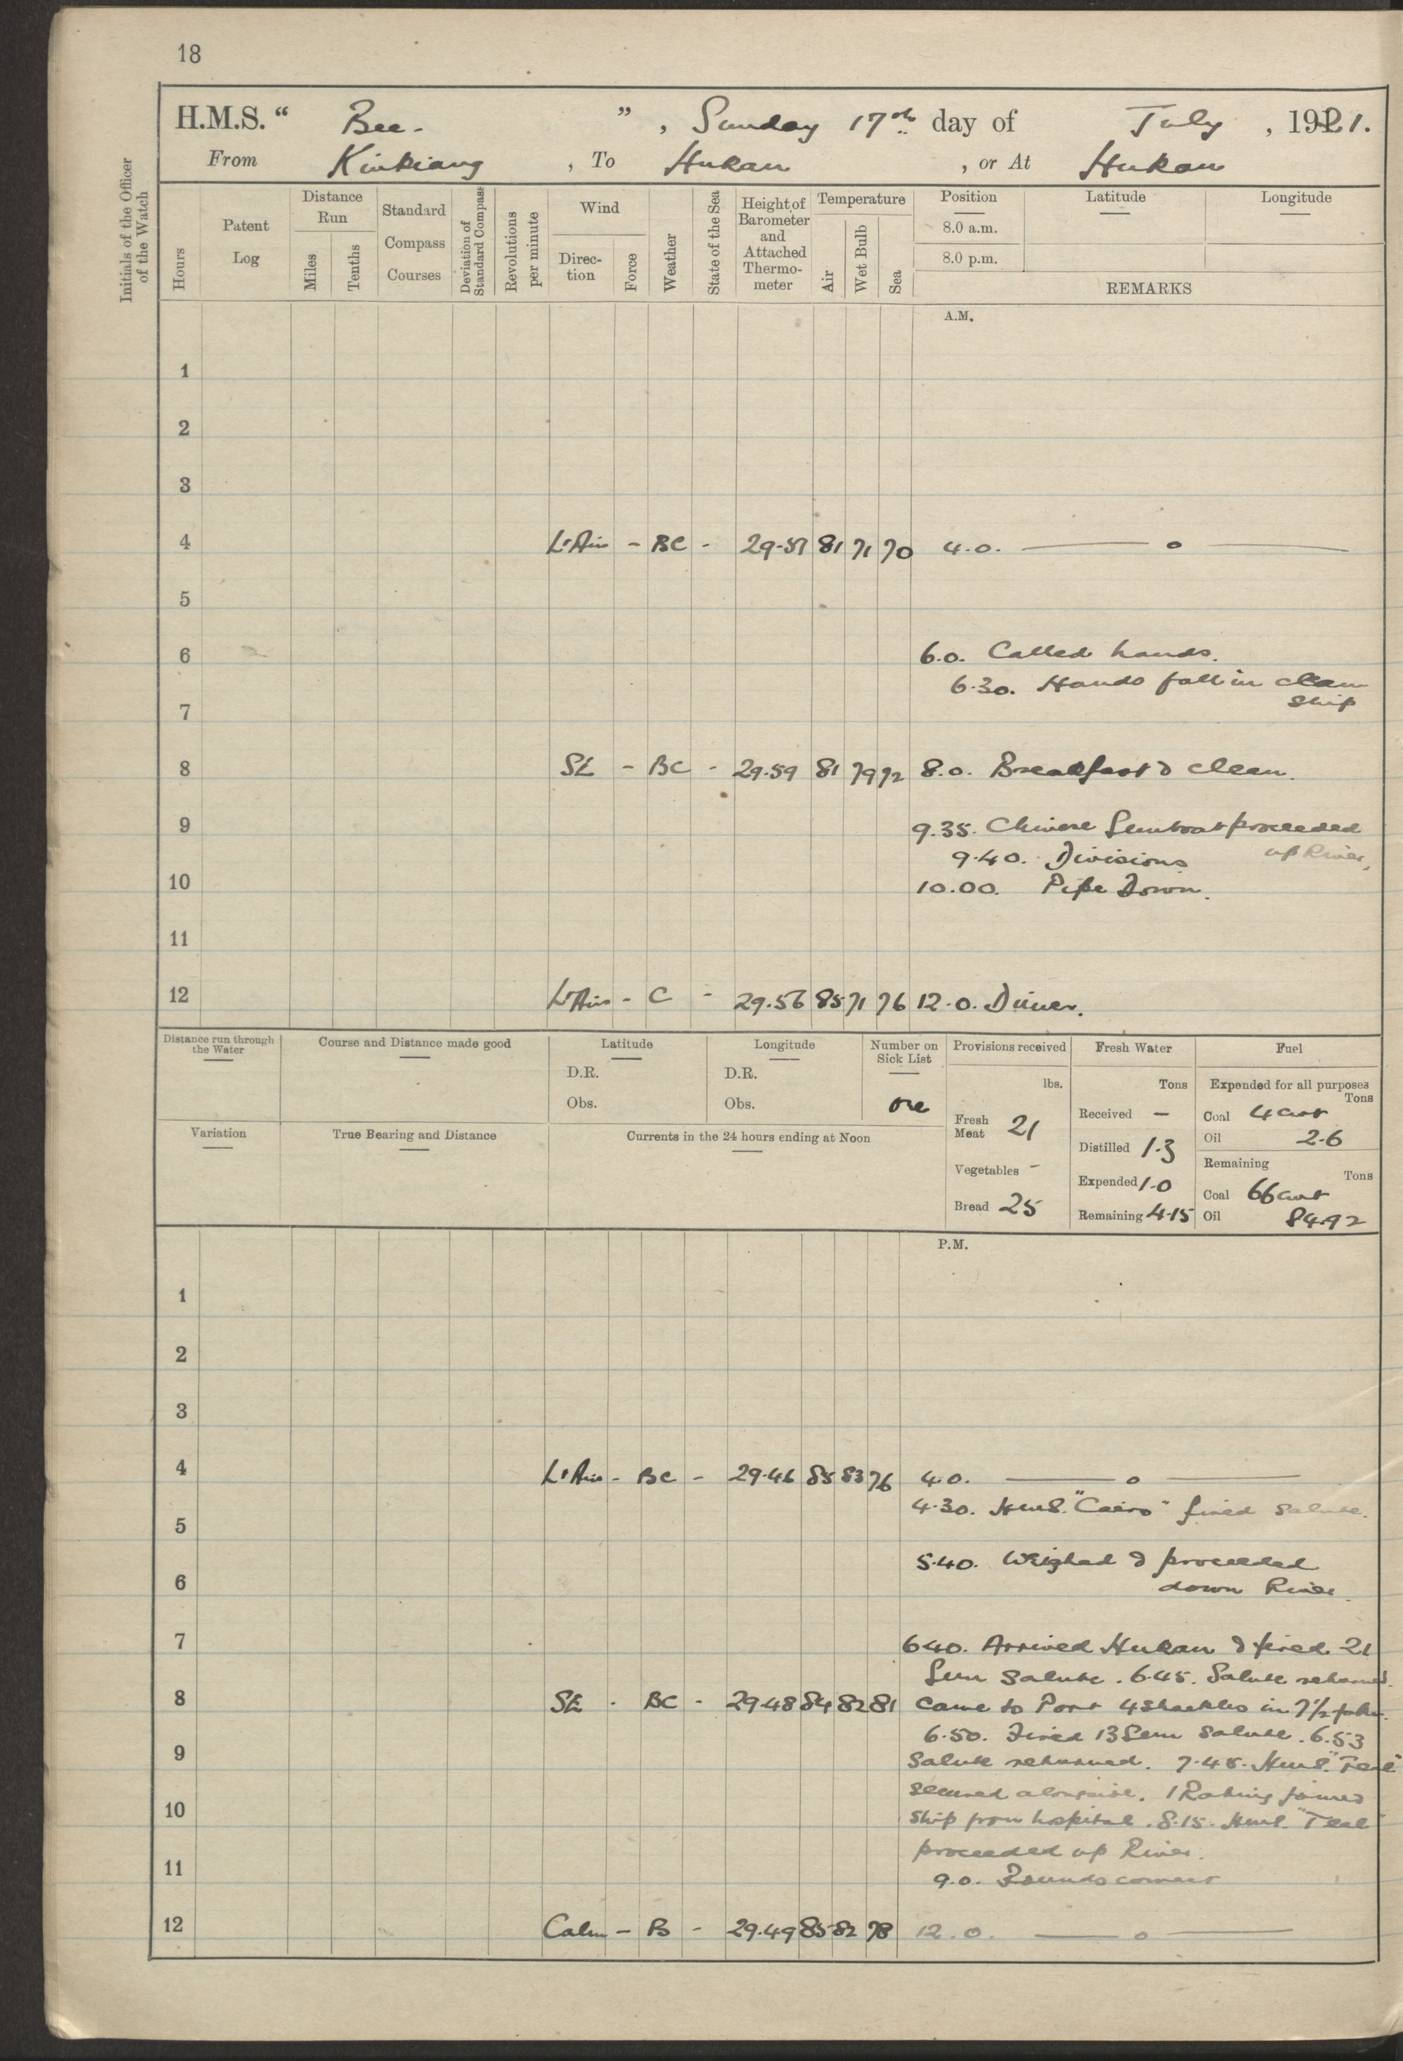 18
H.M.S. “ Bee. ” , Sunday 17th day of July , 1921.
From Kiukiang , To Hukau , or At Hukau
Initials of the Officer of the Watch
Hours
Patent Log
Distance Run
Miles
Tenths
Standard Compass Courses
Deviation of Standard Compass
Revolutions per minute
Wind
Direction
Force
Weather
State of the Sea
Height of Barometer and Attached Thermometer
Temperature
Air
Wet Bulb
Sea
Position
8.0 a.m.
8.0 p.m.
Latitude
Longitude
REMARKS
A.M.
1
2
3
4 Lt Airs - BC - 29.57 81 71 70 4.0. ——— o ———
5
6 6.0. Called hands.
6.30. Hands fall in clean
ship
7
8 SE - BC - 29.59 81 79 72 8.0. Breakfast & clean.
9 9.35. Chinese Gunboat proceeded
up River,
9.40. Divisions
10 10.00. Pipe Down.
11
12 Lt Airs - C - 29.56 85 71 76 12.0. Dinner.
Distance run through the Water
Course and Distance made good
Latitude
D.R.
Obs.
Longitude
D.R.
Obs.
Number on Sick List
one
Variation
True Bearing and Distance
Currents in the 24 hours ending at Noon
Provisions received
lbs.
Fresh Meat 21
Vegetables -
Bread 25
Fresh Water
Tons
Received -
Distilled 1.3
Expended 1.0
Remaining 4.15
Fuel
Expended for all purposes
Tons
Coal 4 cwt
Oil 2.6
Remaining
Tons
Coal 66 cwt
Oil 84.92
P.M.
1
2
3
4 Lt Airs - BC - 29.46 85 83 76 4.0. ——— o ———
4.30. H.M.S. "Cairo" fired salute.
5
5.40. Weighed & proceeded
6 down River.
7 6.40. Arrived Hukau & fired 21
Gun Salute. 6.45. Salute returned.
8 SE . BC - 29.48 84 82 81 Came to Port 4 Shackles in 7½ fathr.
6.50. Fired 13 Gun Salute. 6.53
9 Salute returned. 7.45. H.M.S. "Teal"
secured alongside. 1 Rating joined
10 ship from hospital. 8.15. H.M.S. "Teal"
proceeded up River.
11 9.0. Rounds correct
12 Calm - B - 29.49 85 82 78 12.0. ——— o ———